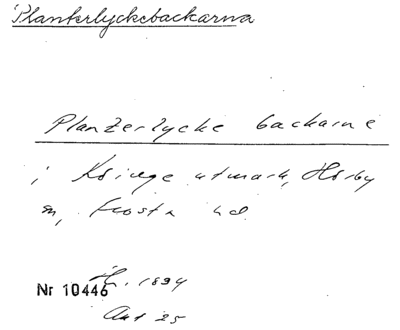 Plankerlyckebackarna
Planterlycke backarne
i utmark, Hörby
sn, Frosta hd
Nr 10446 1894
Akt 25